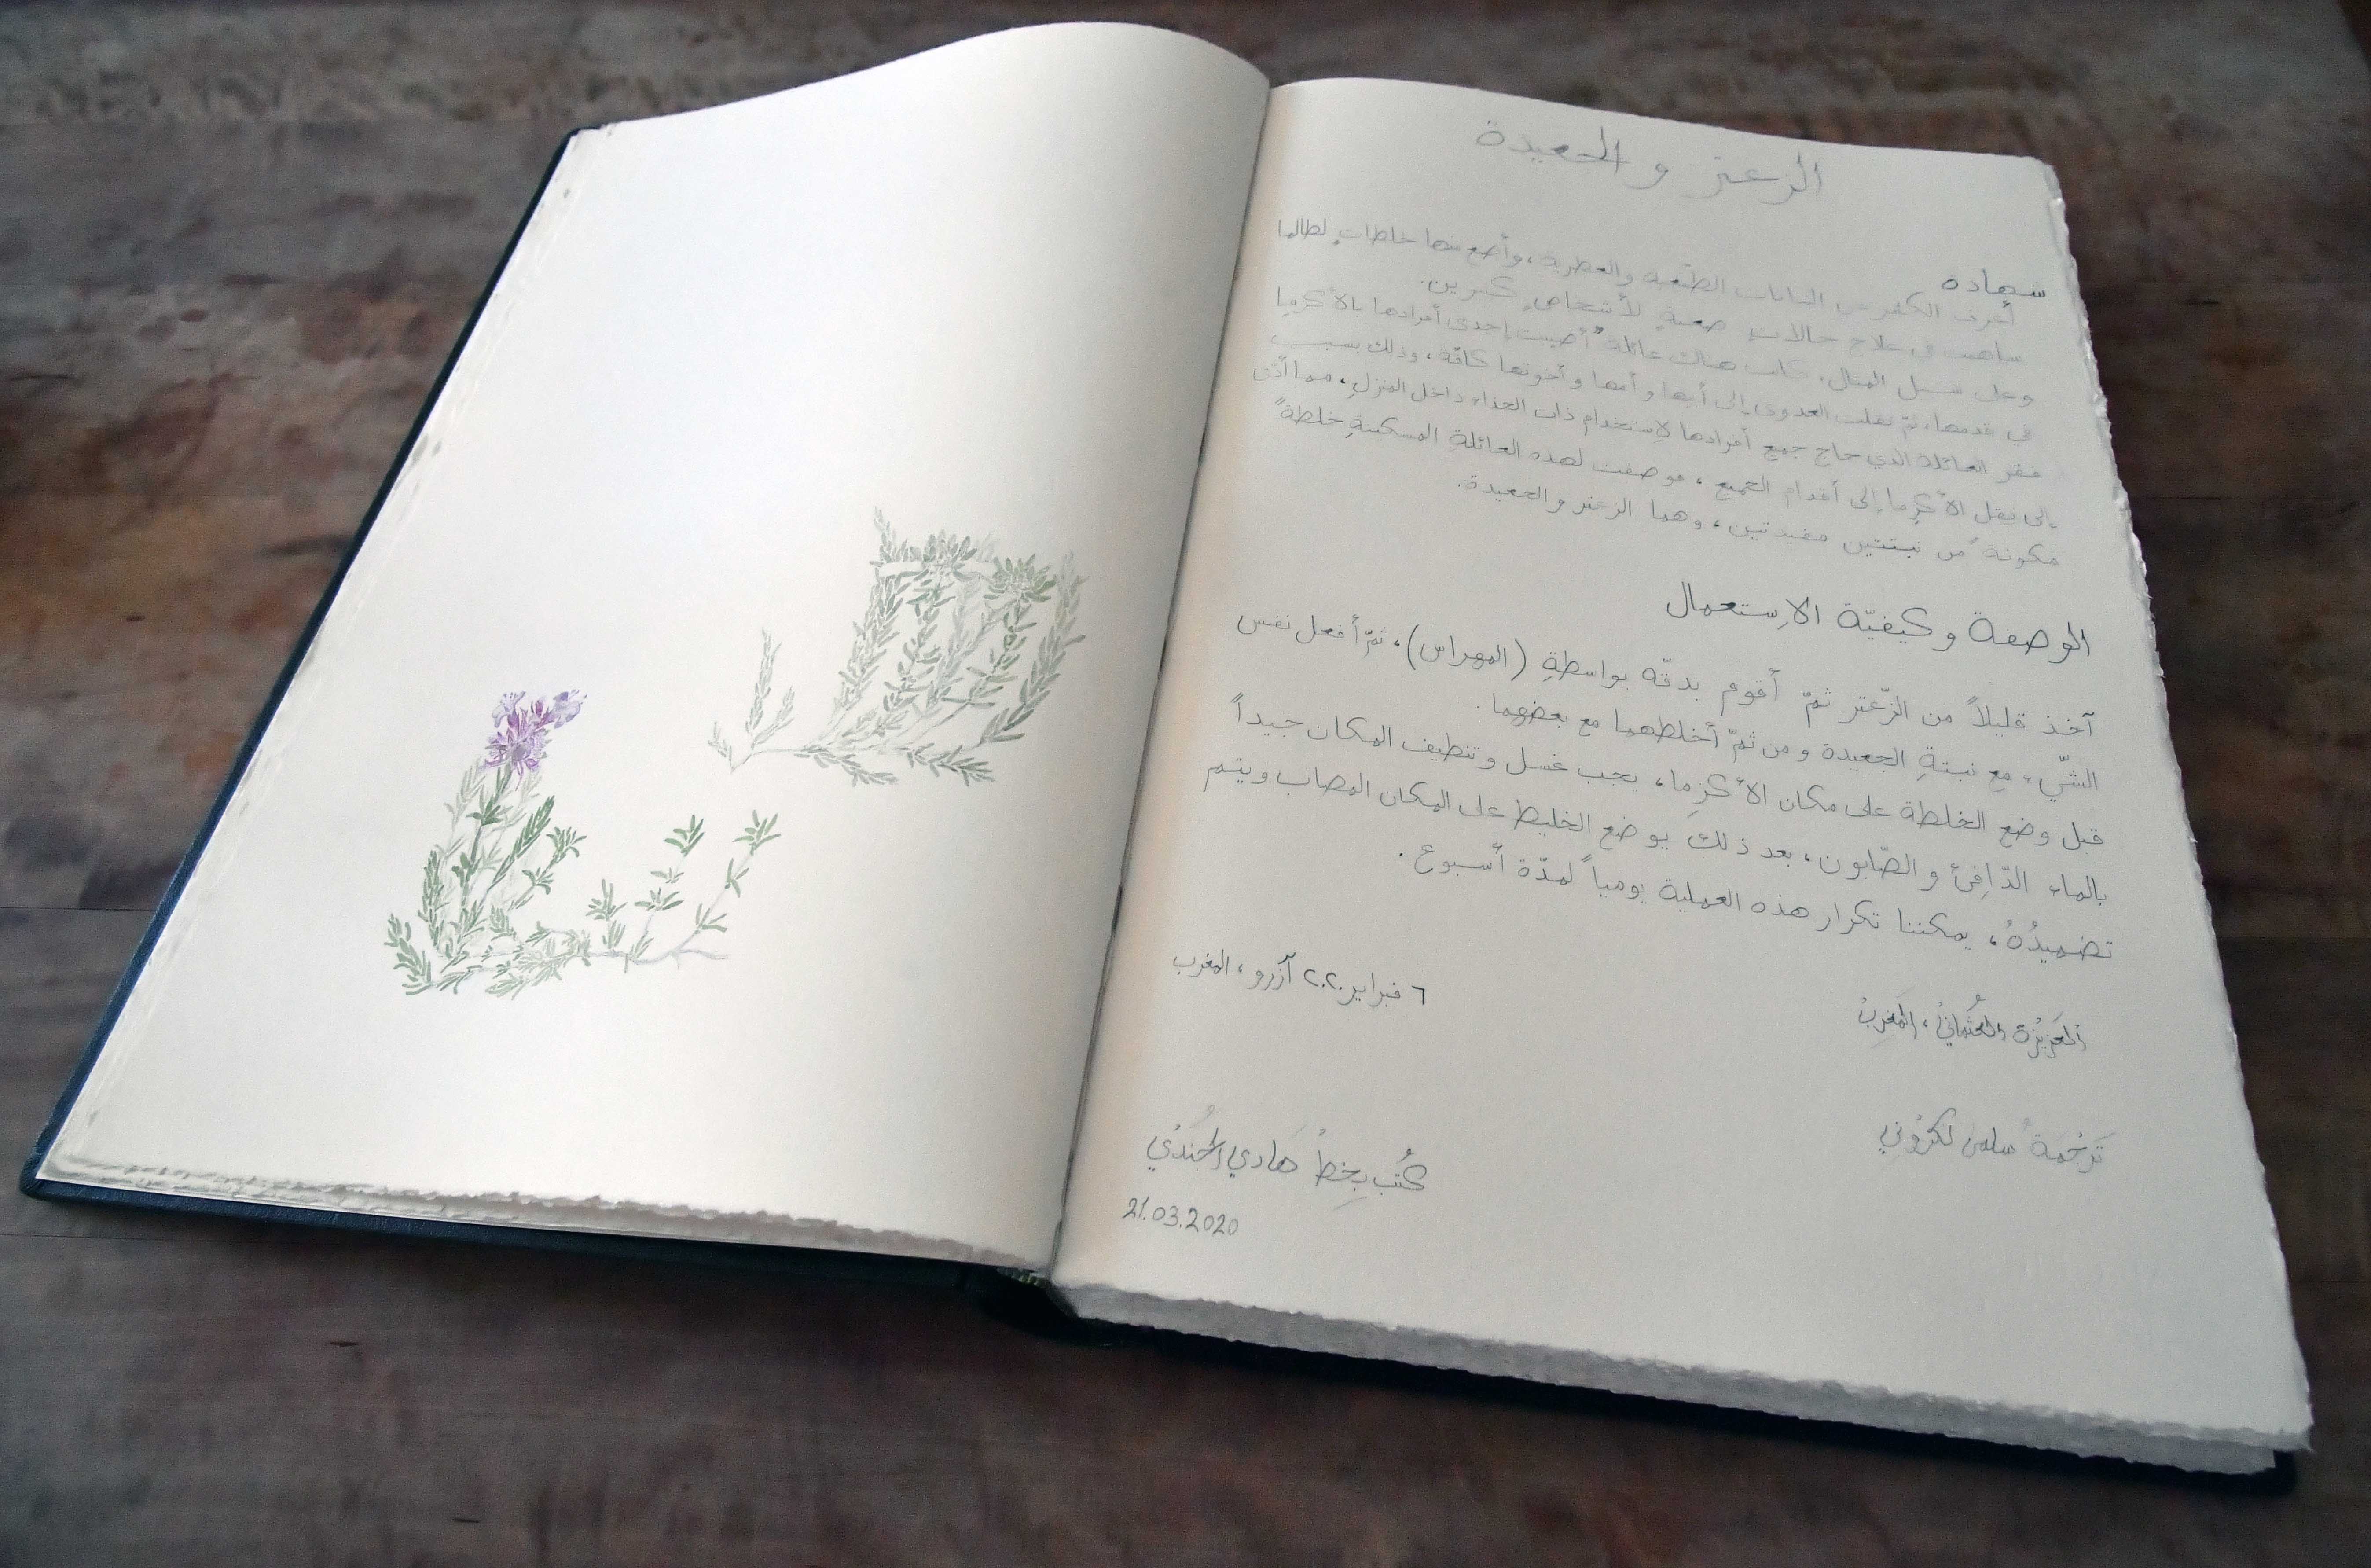 الزعتر و الجعيدة
شهادة
أعرف الكثير من النباتات الطبّيعية والعطرية، وأصنع منها خلطاتٍ لطالما
ساهمت في علاج حالاتٍ صعبةٍ لأشخاصٍ كثيرين.
وعلى سبيل المثال، كانت هناك عائلة أصيبت إحدى أفرادها بالأكزِما
في قدمها، ثمّ نقلت العدوى إلى أبيها و أمها و أخوتها كافّة، وذلك بسبب
فقر العائلة الذي حاج جميع أفرادها لإستخدام ذات الحذاء داخل المنزلِ، مما أدّى
إلى نقل الأكزِما إلى أقدام الجميع، فوصفت لهذه العائلةِ المسكينةِ خلطةً
مكونةً من نبتتين مفيدتين، وهما الزعتر والجعيدة.
الوصفة وكيفيّة الاِستعمال
آخذ قليلاً من الزّعتر ثمّ أقوم بدقّه بواسطةِ (المهراس)، ثمّ أفعل نفس
الشّيء مع نبتةِ الجعيدة ومن ثمّ أخلطهما مع بعضهما.
قبل وضع الخلطة على مكان الأكزِما، يجب غسل وتنظيف المكان جيداً
بالماء الدّافئ والصّابون، بعد ذلك يوضع الخليط على المكان المصاب ويتم
تضميدُهُ، يمكننا تكرار هذه العملية يومياً لمدّة أسبوع.
العَزيزة العُثماني، المَغرب
٦ فبراير ٢٠٢٠ آزرو، المغرب
تَرجُمة سلمى لكزوني
كُتب بِخطِ هَادي الجُندي
21.03.2020